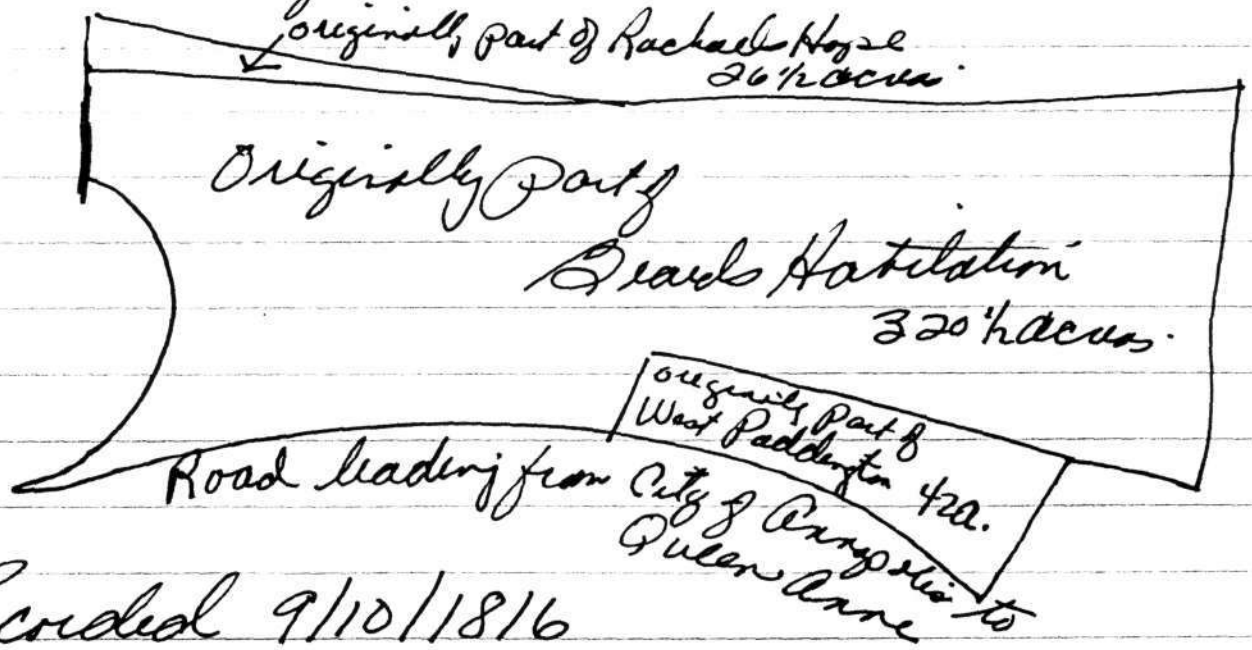 originally part of Rachaels Hope
26 1/2 acres
Originally Part of
Beards Habitation
320 1/2 acres.
originally part of
West Paddington 42a.
Road leading from City of Annapolis to
Queen Anne
Recorded 9/10/1816